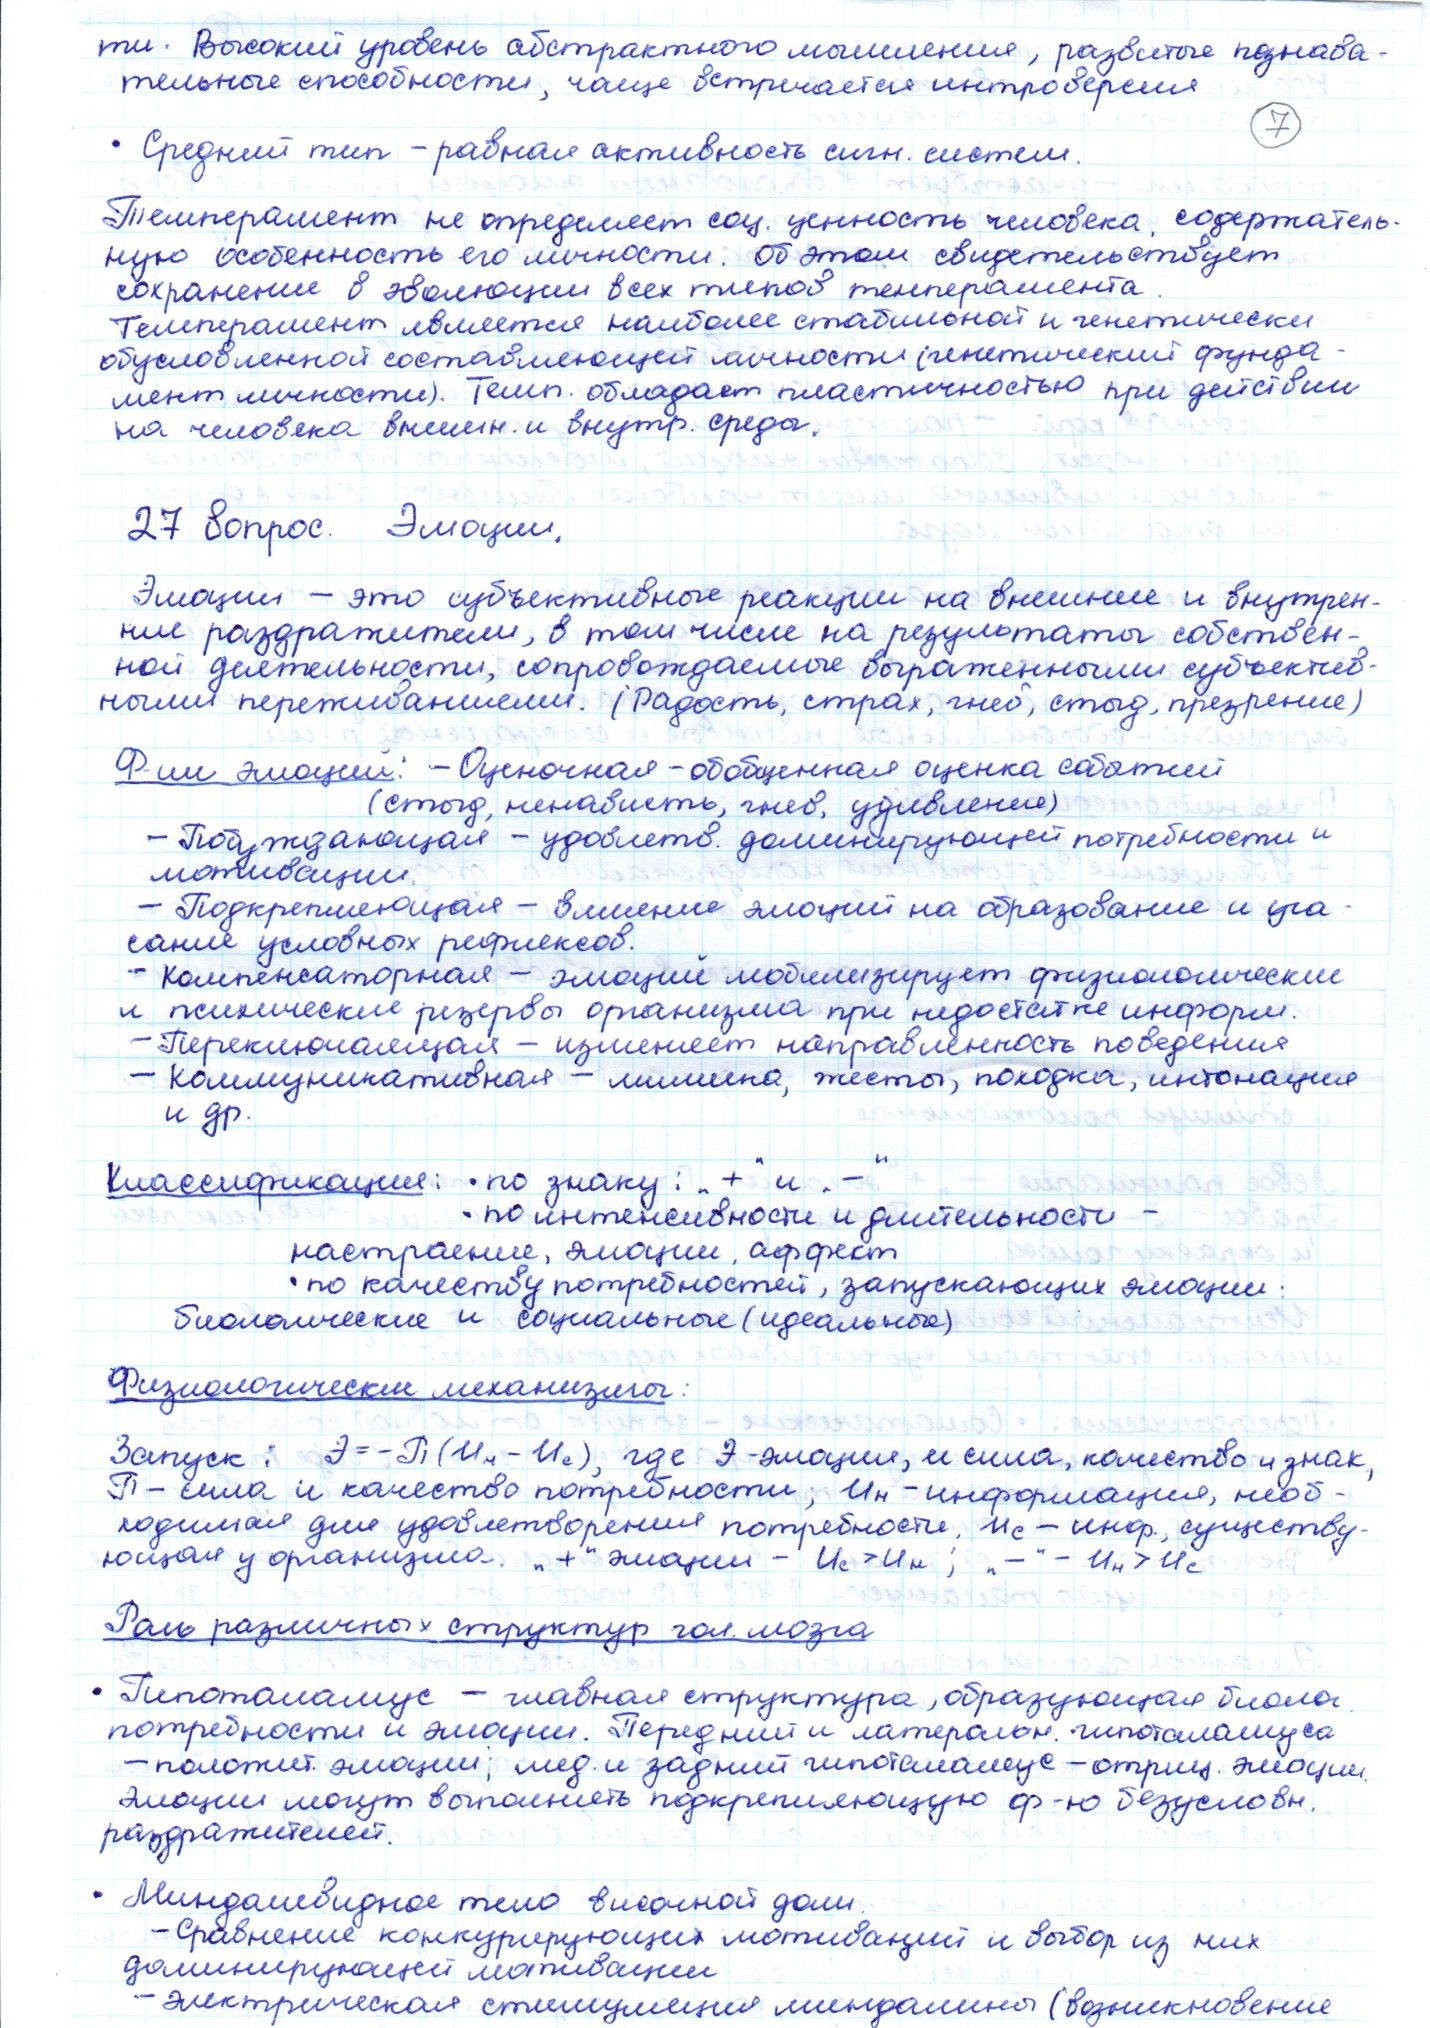 ти. Высокий уровень абстрактного мышления, развитые познава-
тельные способности, чаще встречается интроверсия
7
• Средний тип – равная активность сигн. систем.
Темперамент не определяет соц. ценность человека, содержатель-
ную особенность его личности. Об этом свидетельствует
сохранение в эволюции всех типов темперамента.
Темперамент является наиболее стабильной и генетически
обусловленной составляющей личности (генетический фунда-
мент личности). Темп. обладает пластичностью при действии
на человека внешн. и внутр. среды.
27 вопрос. Эмоции.
Эмоции – это субъективные реакции на внешние и внутрен-
ние раздражители, в том числе на результаты собствен-
ной деятельности, сопровождаемые выраженными субъектив-
ными переживаниями. (Радость, страх, гнев, стыд, презрение)
Ф-ии эмоций: – Оценочная – обобщенная оценка событий
(стыд, ненависть, гнев, удивление)
– Побуждающая – удовлетв. доминирующей потребности и
мотивации.
– Подкрепляющая – влияние эмоций на образование и уга-
сание условных рефлексов.
– Компенсаторная – эмоций мобилизирует физиологические
и психические резервы организма при недостатке информ.
– Переключающая – изменяет направленность поведения
– Коммуникативная – мимика, жесты, походка, интонация
и др.
Классификация: • по знаку: „+" и „–"
• по интенсивности и длительности –
настроение, эмоции, аффект
• по качеству потребностей, запускающих эмоции:
биологические и социальные (идеальные)
Физиологические механизмы:
Запуск: Э=-П(Ин – Ис), где Э-эмоция, и сила, качество и знак,
П – сила и качество потребности, Ин – информация, необ-
ходимая для удовлетворения потребности, Ис – инф., существу-
ющая у организма. „+" эмоции – Ис>Ин; „–" – Ин>Ис
Роль различных структур гол. мозга
• Гипоталамус – главная структура, образующая биолог.
потребности и эмоции. Передний и латеральн. гипоталамуса
– положит. эмоции; мед. и задний гипоталамус – отриц. эмоции.
Эмоции могут выполнять подкрепляющую ф-ю безусловн.
раздражителей.
• Миндалевидное тело височной доли.
– Сравнение конкурирующих мотиваций и выбор из них
доминирующей мотивации
– Электрическая стимуляция миндалины (возникновение